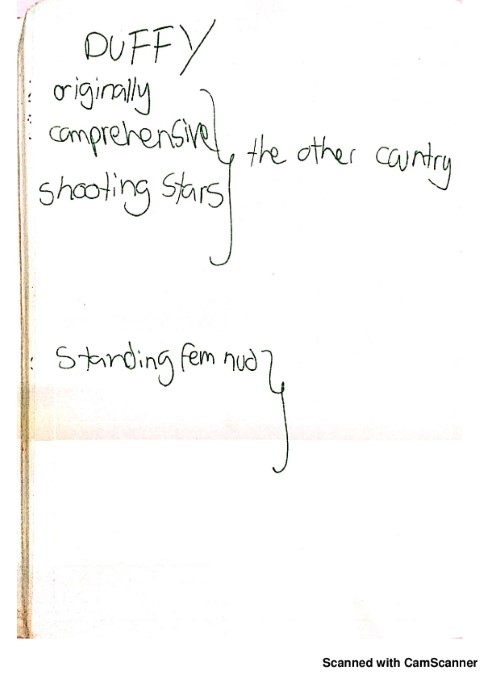 DUFFY
originally
comprehensive
shooting stars
the other country
standing fem nud
Scanned with CamScanner